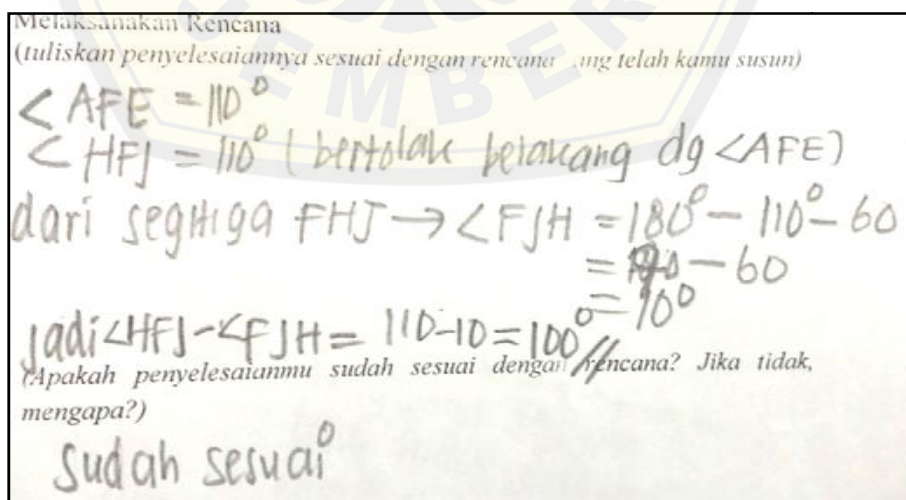 Melaksanakan Rencana
(tuliskan penyelesaiannya sesuai dengan rencana ang telah kamu susun)
EMBER
< AFE = 110°
< HFJ = 110° (bertolak belakang dg <AFE)
dari segitiga FHJ → < FJH = 180° - 110° - 60
= - 60
= 10°
jadi <HFJ - <FJH = 110-10 = 100° //
(Apakah penyelesaianmu sudah sesuai dengan rencana? Jika tidak,
mengapa?)
Sudah sesuai